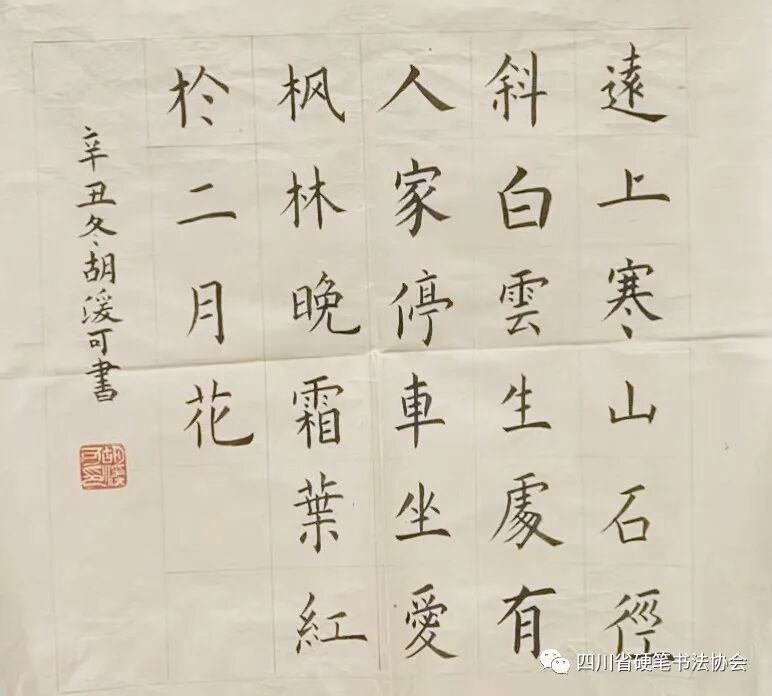 遠上寒山石徑
斜白雲生處有
人家停車坐愛
枫林晚霜葉紅
於二月花
辛丑冬胡湲可書
四川省硬笔书法协会